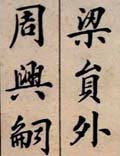 梁貟外
周興嗣